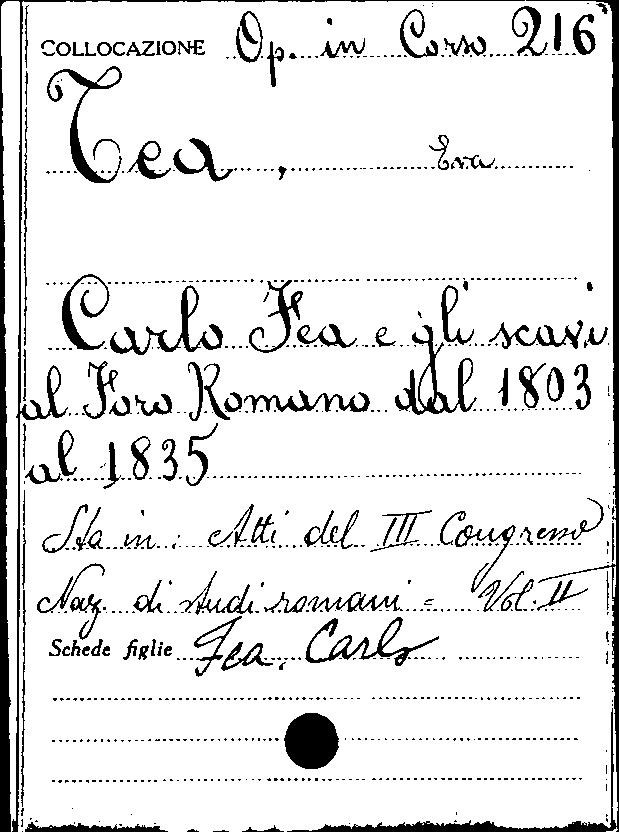 COLLOCAZIONE Op. in Corso 216
Tea, Eva
Carlo Fea e gli scavi
al Foro Romano dal 1803
al 1835
Sta in: Atti del III Congresso
Naz. di studi romani = Vol. II
Schede figlie Fea, Carlo